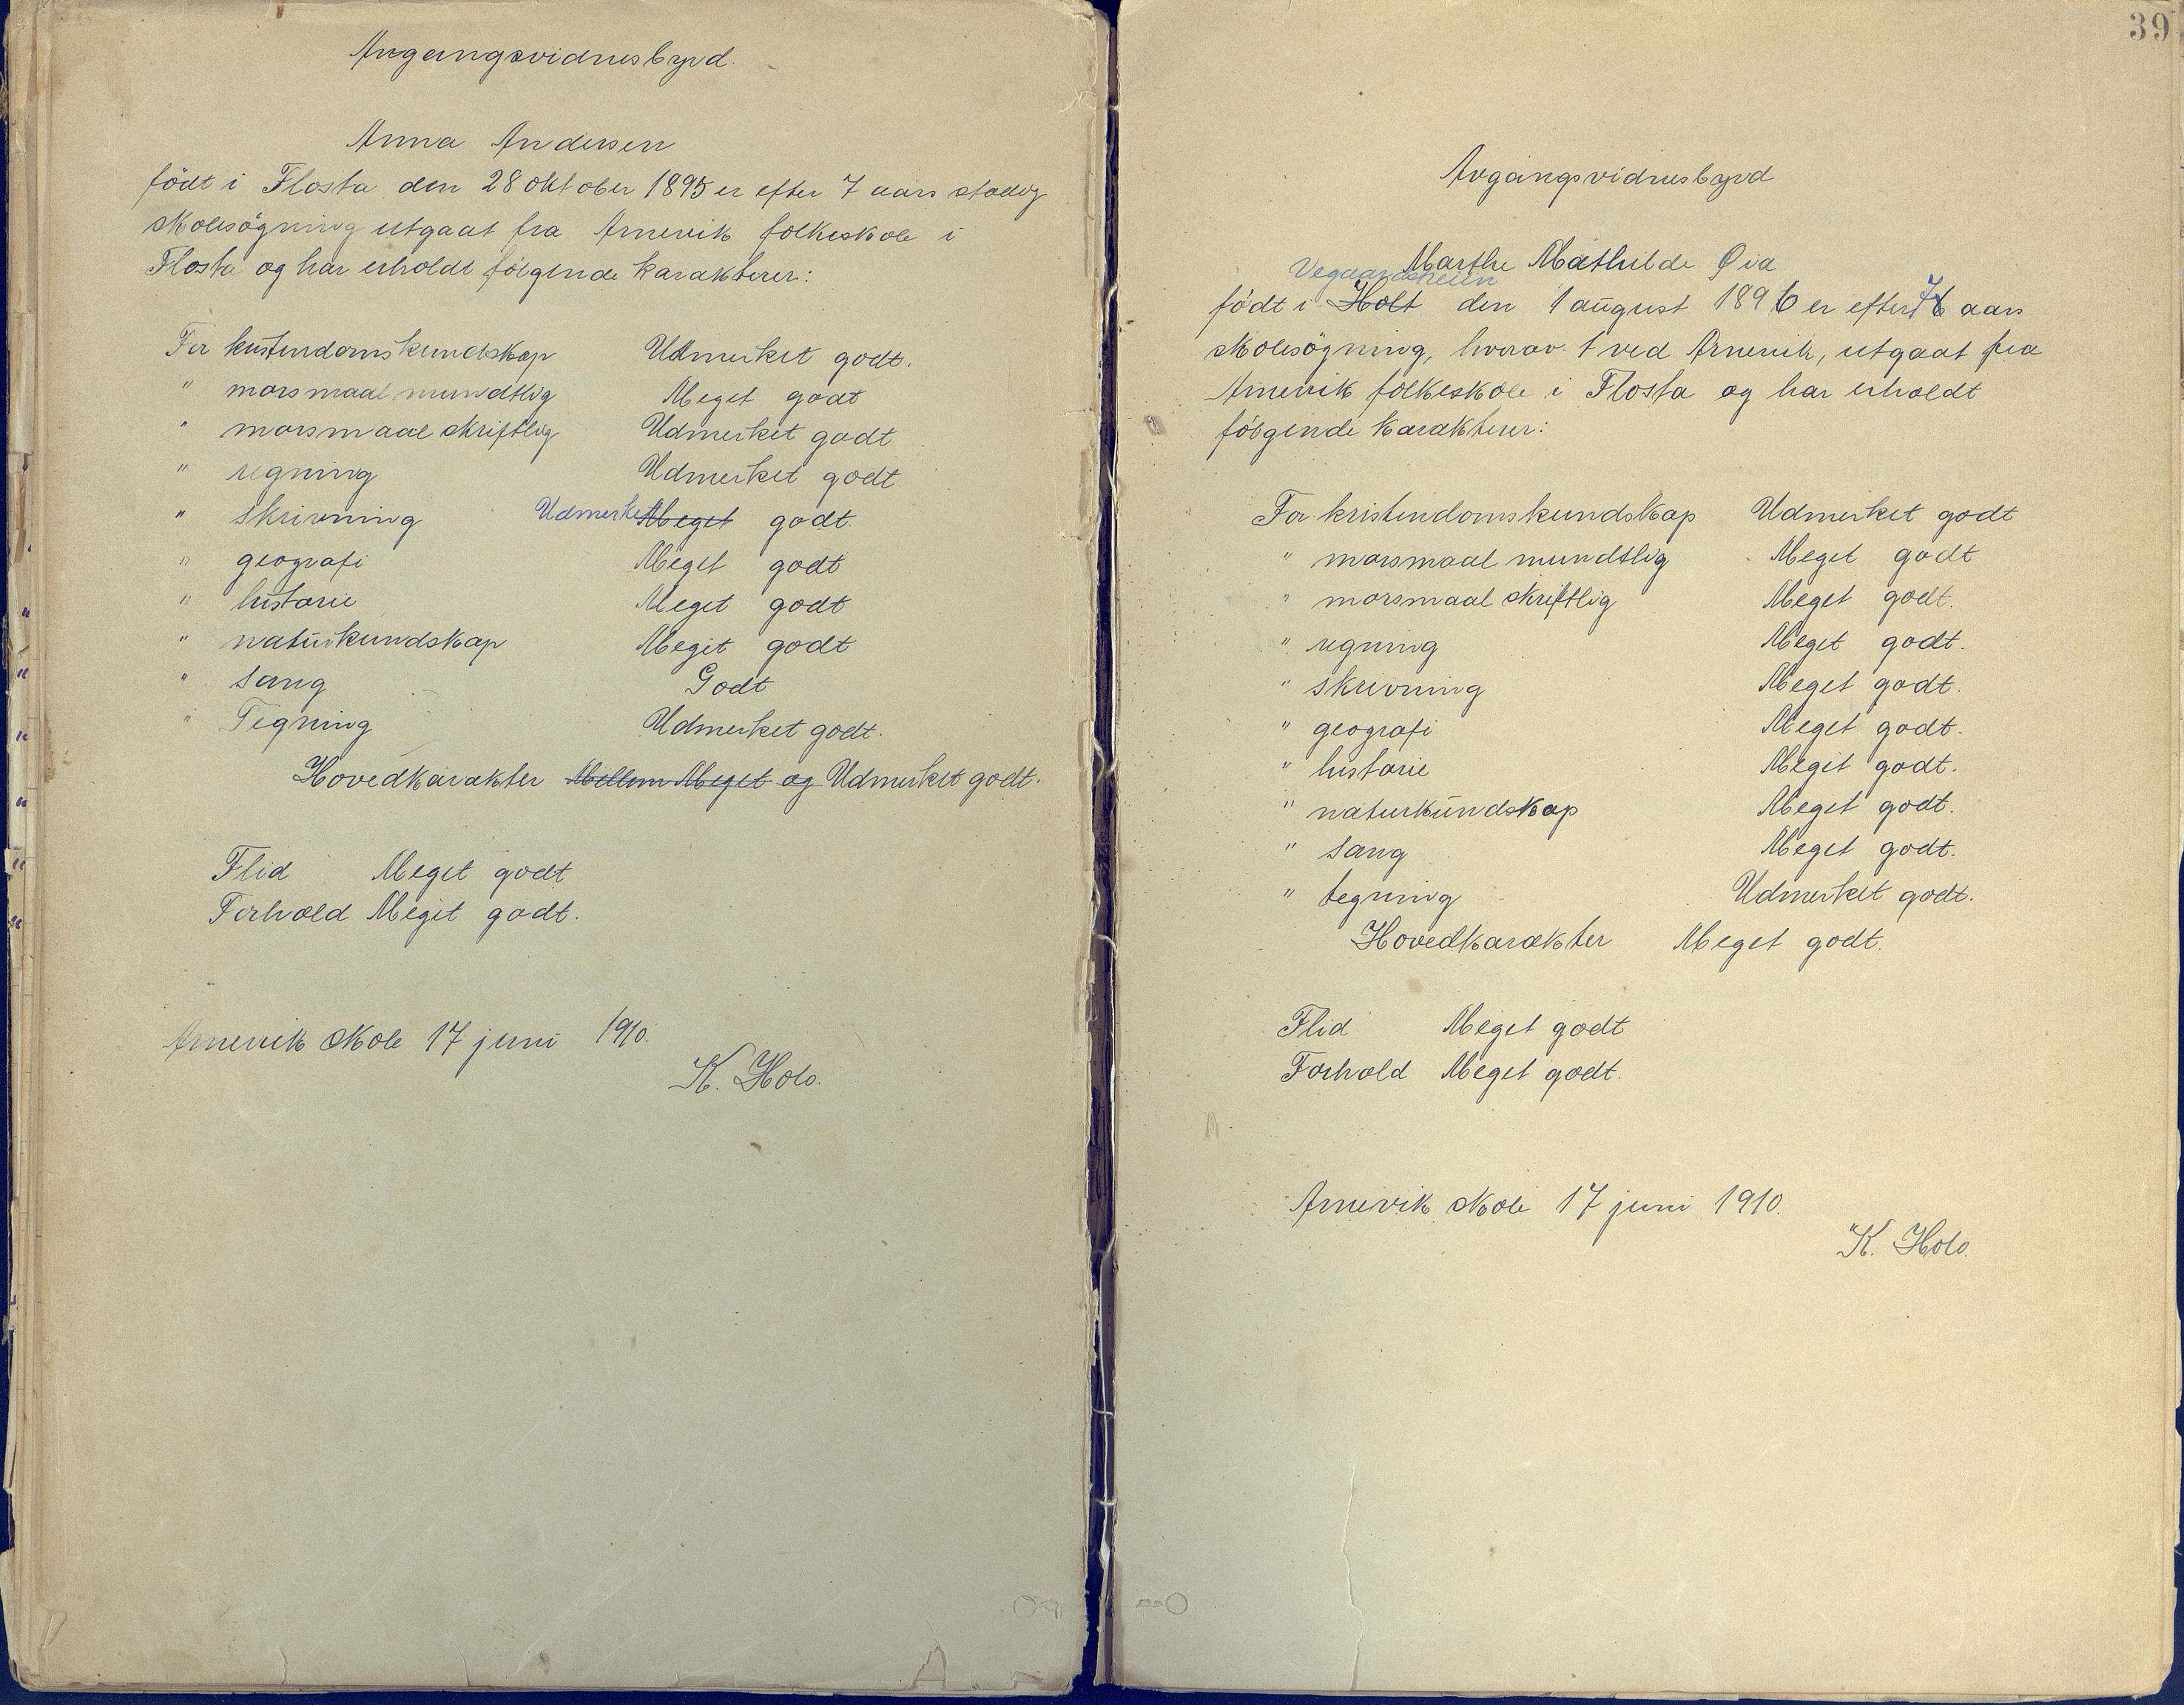 Avgangsvidnesbyrd.
Anna Andersen
födt i Flosta den 28 oktober 1895 er efter 7 aars stadig
skolesögning utgaat fra Arnevik folkeskole i
Flosta og har erholdt fölgende karakterer:
For kristendomskundskap Udmerket godt.
" morsmaal mundtlig Meget godt
" morsmaal skriftlig Udmerket godt
" regning Udmerket godt
" skrivning Udmerket Meget godt.
" geografi Meget godt
" historie Meget godt
" naturkundskap Meget godt
" sang Godt
" Tegning Udmerket godt.
Hovedkarakter Mellem Meget og Udmerket godt.
Flid Meget godt
Forhold Meget godt.
Arnevik skole 17 juni 1910.
K. Holo.
39
Avgangsvidnesbyrd
Marthe Mathilde Øia
Vegaardsheien
födt i Holt den 1 august 1896 er efter 7 6 aars
skolesögning, hvorav 1 ved Arnevik, utgaat fra
Arnevik folkeskole i Flosta og har erholdt
fölgende karakterer:
For kristendomskundskap Udmerket godt
" morsmaal mundtlig Meget godt
" morsmaal skriftlig Meget godt.
" regning Meget godt.
" skrivning Meget godt.
" geografi Meget godt.
" historie Meget godt.
" naturkundskap Meget godt.
" sang Meget godt.
" tegning Udmerket godt.
Hovedkarakter Meget godt.
Flid Meget godt
Forhold Meget godt.
Arnevik skole 17 juni 1910.
K. Holo.